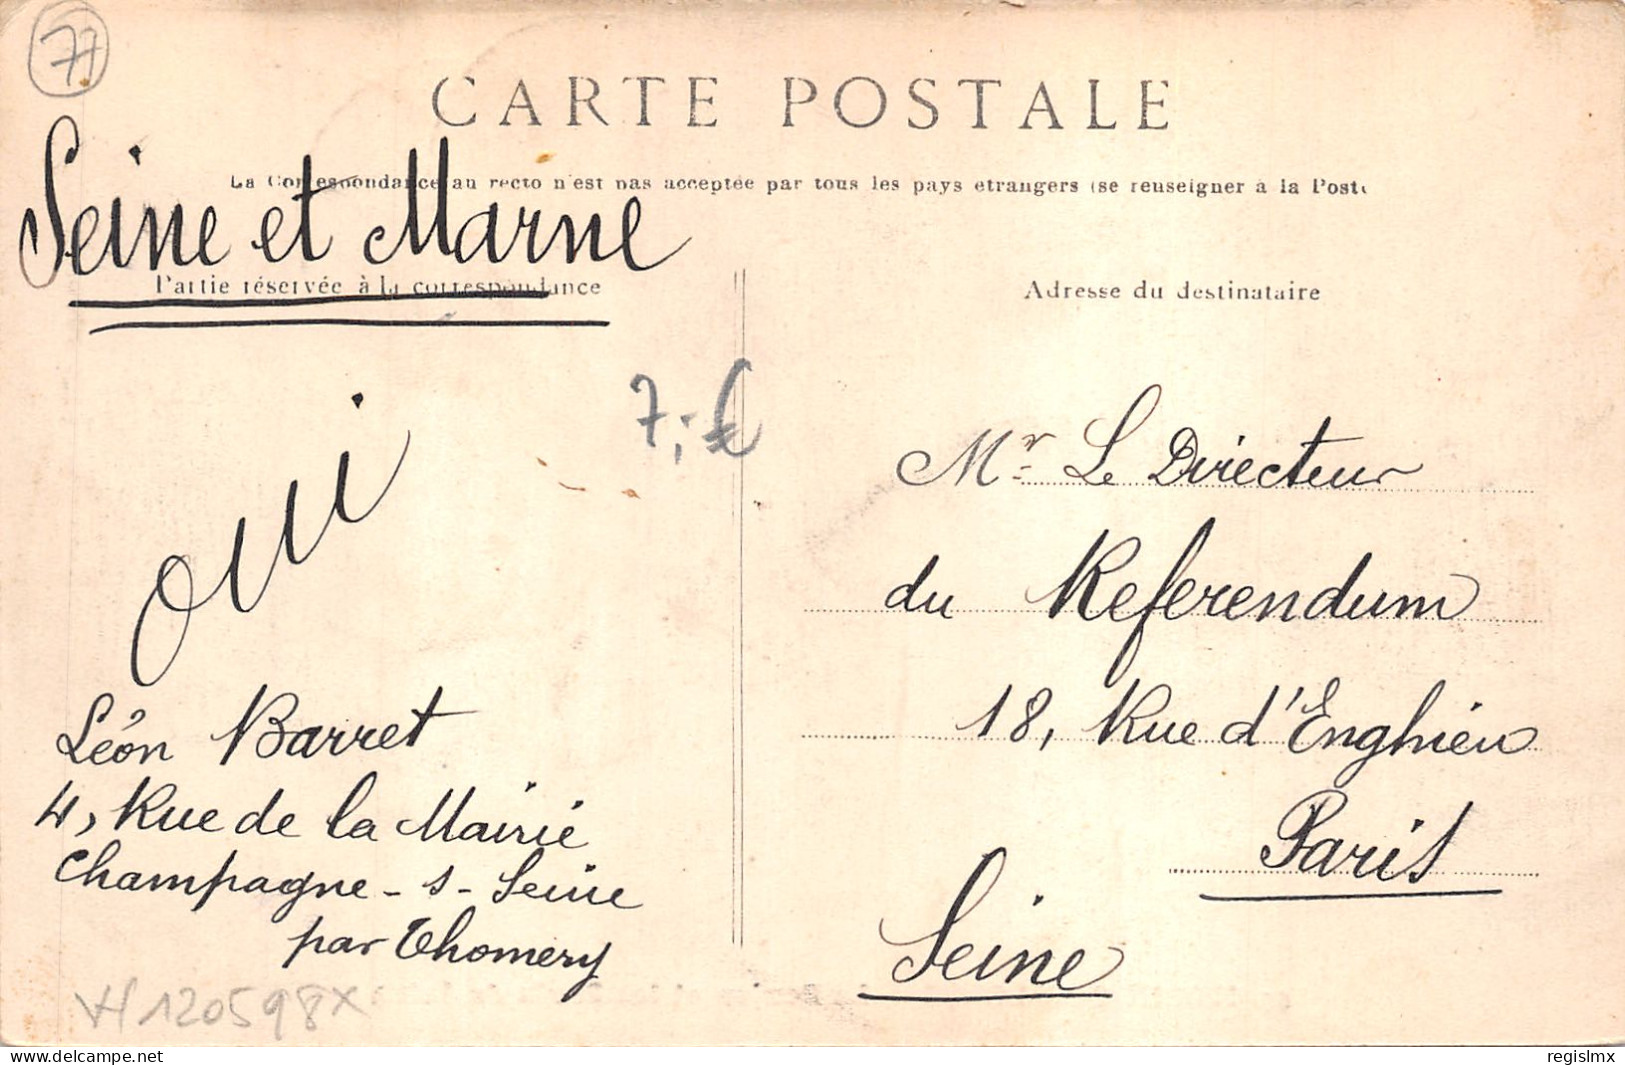 77
CARTE POSTALE
La Correspondance au recto n'est pas acceptée par tous les pays etrangers (se renseigner à la Poste
Seine et Marne
Partie réservée à la correspondance
Adresse du destinataire
7,-€
oui
Léon Barret
4, Rue de la Mairie
Champagne-s-Seine
par Thomery
Mr Le Directeur
du Referendum
18, Rue d'Enghien
Paris
Seine
120598X
delcampe.net
regislmx